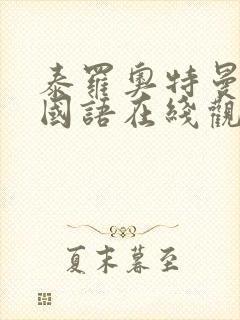 泰罗奥特曼
國語在綫觀
夏末暮至